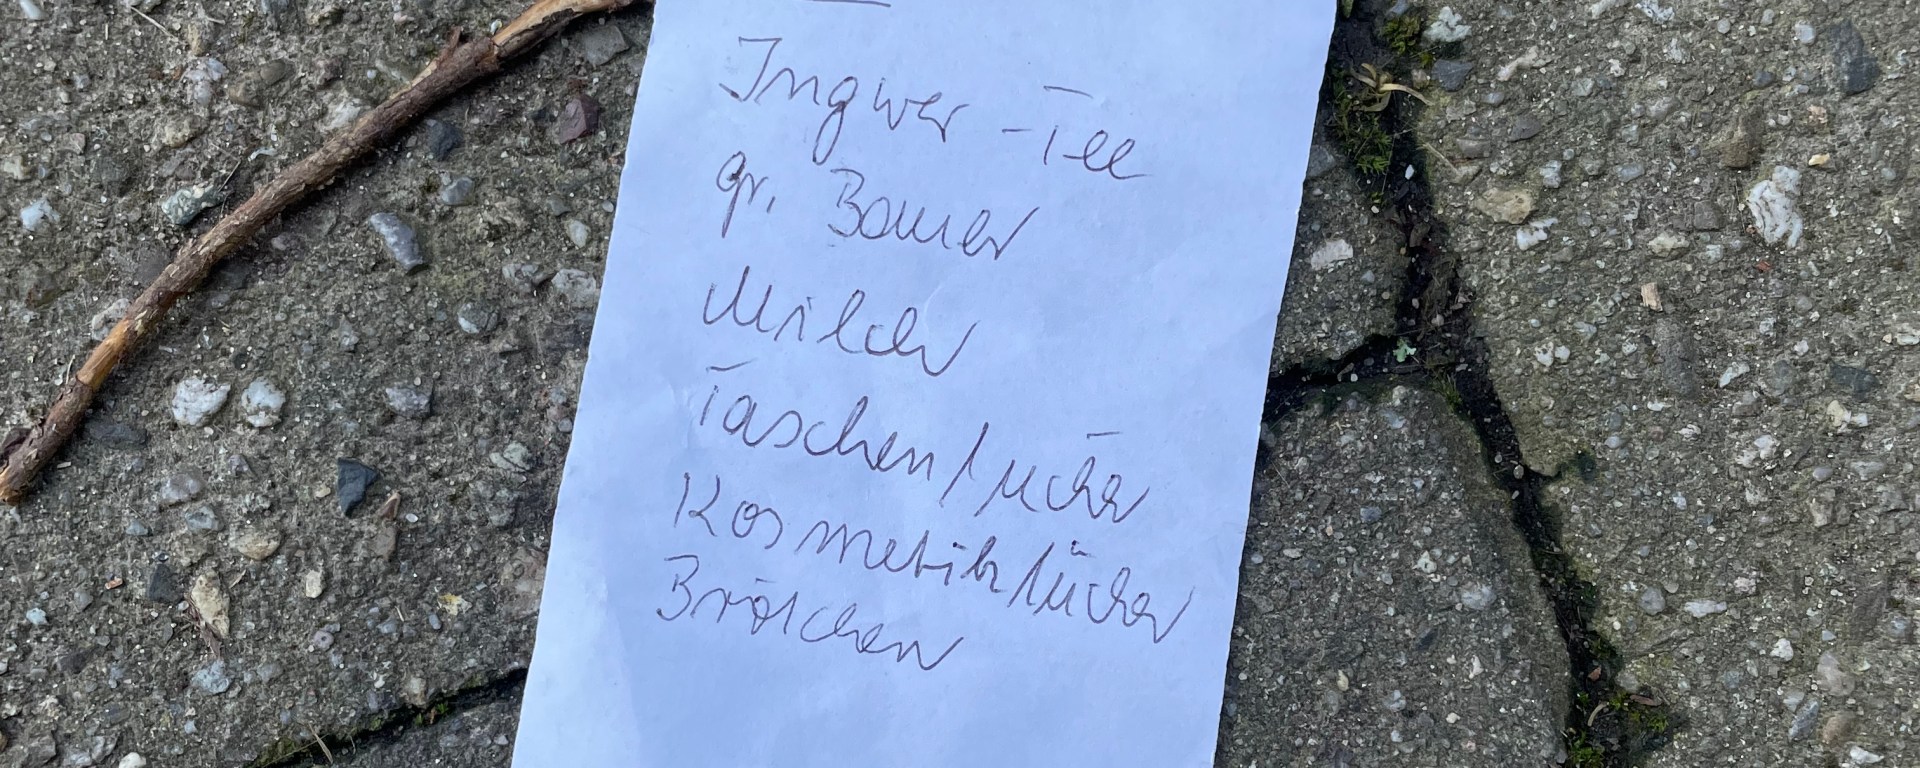 Ingwer-Tee
gr. Bauer
Milch
Taschen/tücher
Kosmetiktücher
Brötchen